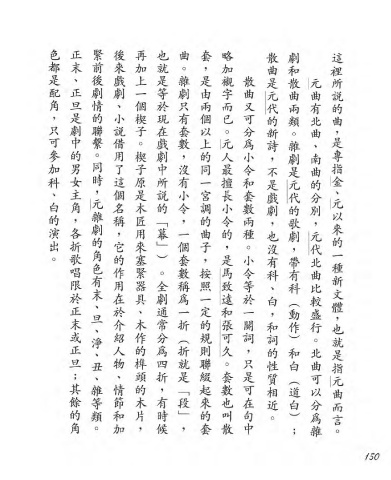 這裡所說的曲，是專指金、元以來的一種新文體，也就是指元曲而言。
元曲有北曲、南曲的分別，元代北曲比較盛行。北曲可以分爲雜
劇和散曲兩類。雜劇是元代的歌劇，帶有科（動作）和白（道白）；
散曲是元代的新詩，不是戲劇，也沒有科、白，和詞的性質相近。
散曲又可分爲小令和套數兩種。小令等於一闋詞，只是可在句中
略加襯字而已。元人最擅長小令的，是馬致遠和張可久。套數也叫散
套，是由兩個以上的同一宮調的曲子，按照一定的規則聯綴起來的套
曲。雜劇只有套數，沒有小令，一個套數稱爲一折（折就是「段」，
也就是等於現在戲劇中所說的「幕」）。全劇通常分爲四折，有時候
再加上一個楔子。楔子原是木匠用來塞緊器具、木作的榫頭的木片，
後來戲劇、小說借用了這個名稱，它的作用在於介紹人物、情節和加
緊前後劇情的聯繫。同時，元雜劇的角色有末、旦、淨、丑、雜等類。
正末、正旦是劇中的男女主角，各折歌唱限於正末或正旦；其餘的角
色都是配角，只可參加科、白的演出。
150